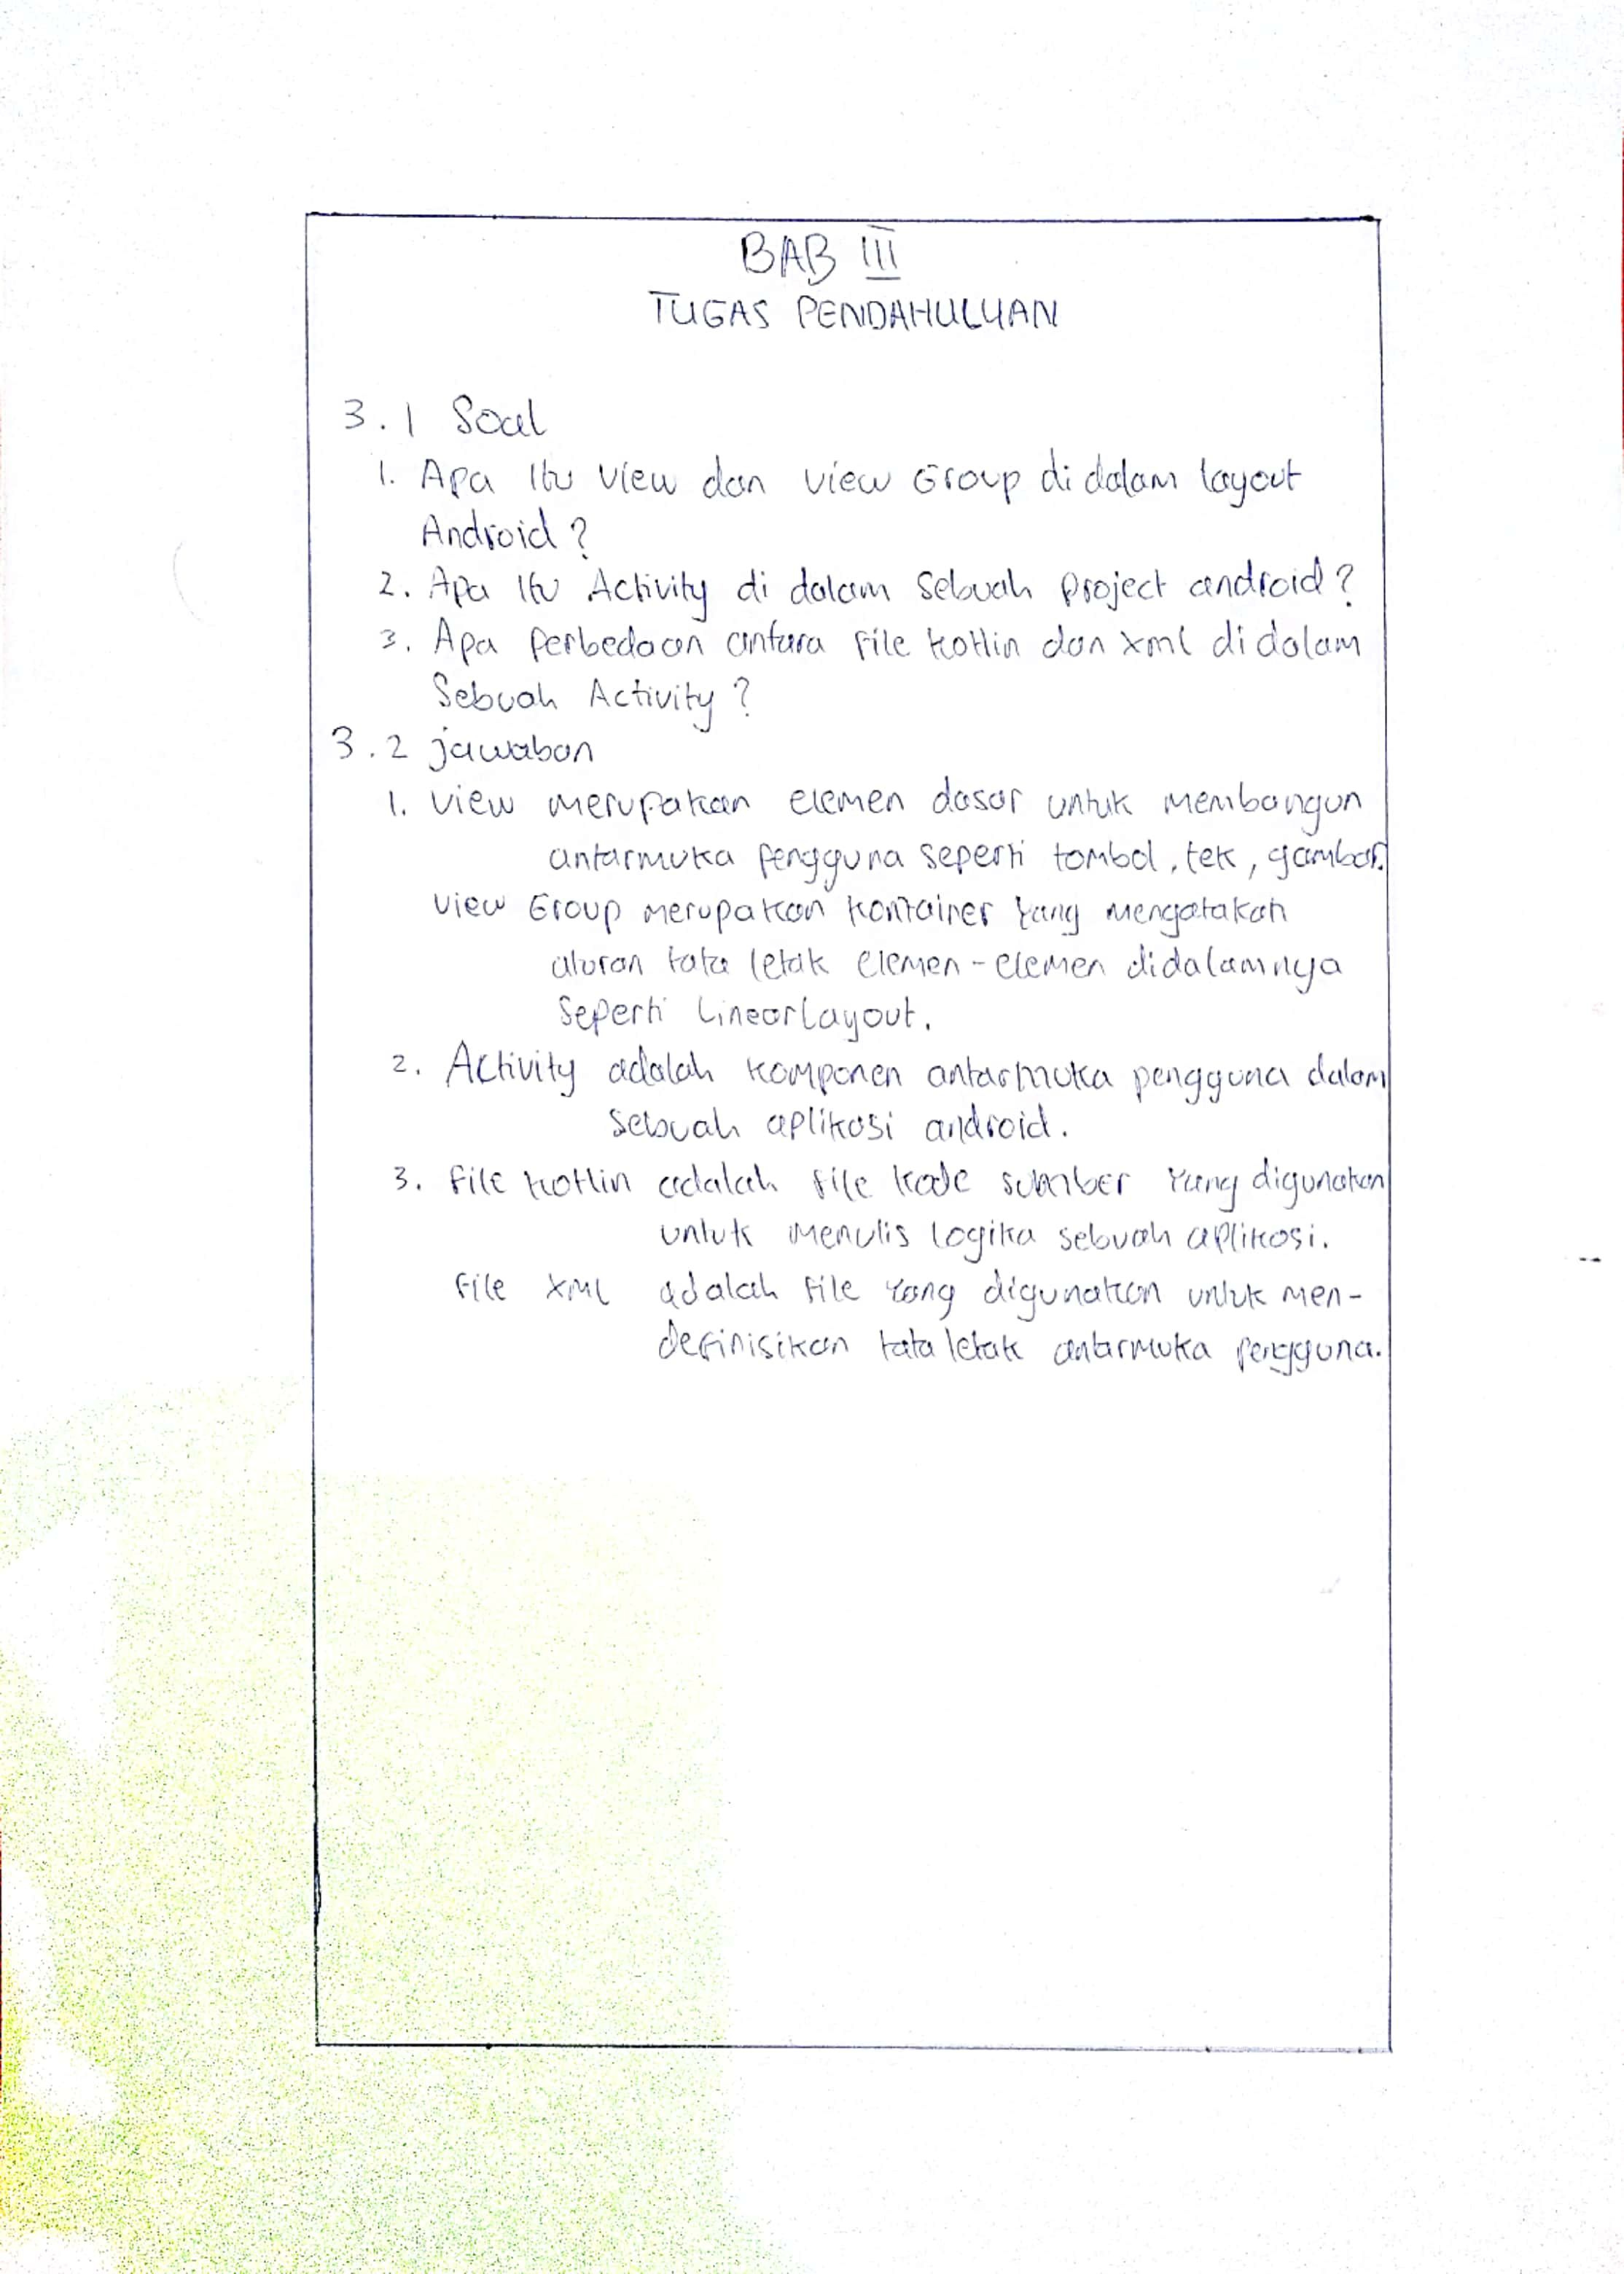 BAB III
TUGAS PENDAHULUAN
3.1 Soal
1. Apa Itu View dan View Group di dalam layout
Android?
2. Apa Itu Activity di dalam sebuah project android?
3. Apa perbedaan antara file kotlin dan xml di dalam
Sebuah Activity?
3.2 jawaban
1. View merupakan elemen dasar untuk membangun
antarmuka pengguna seperti tombol, tek, gambar.
View Group merupakan kontainer yang mengatakan
aturan tata letak elemen-elemen didalamnya
seperti LinearLayout.
2. Activity adalah komponen antarmuka pengguna dalam
sebuah aplikasi android.
3. File kotlin adalah file kode sumber yang digunakan
untuk menulis logika sebuah aplikasi.
File XML adalah file yang digunakan untuk men-
definisikan tata letak antarmuka pengguna.